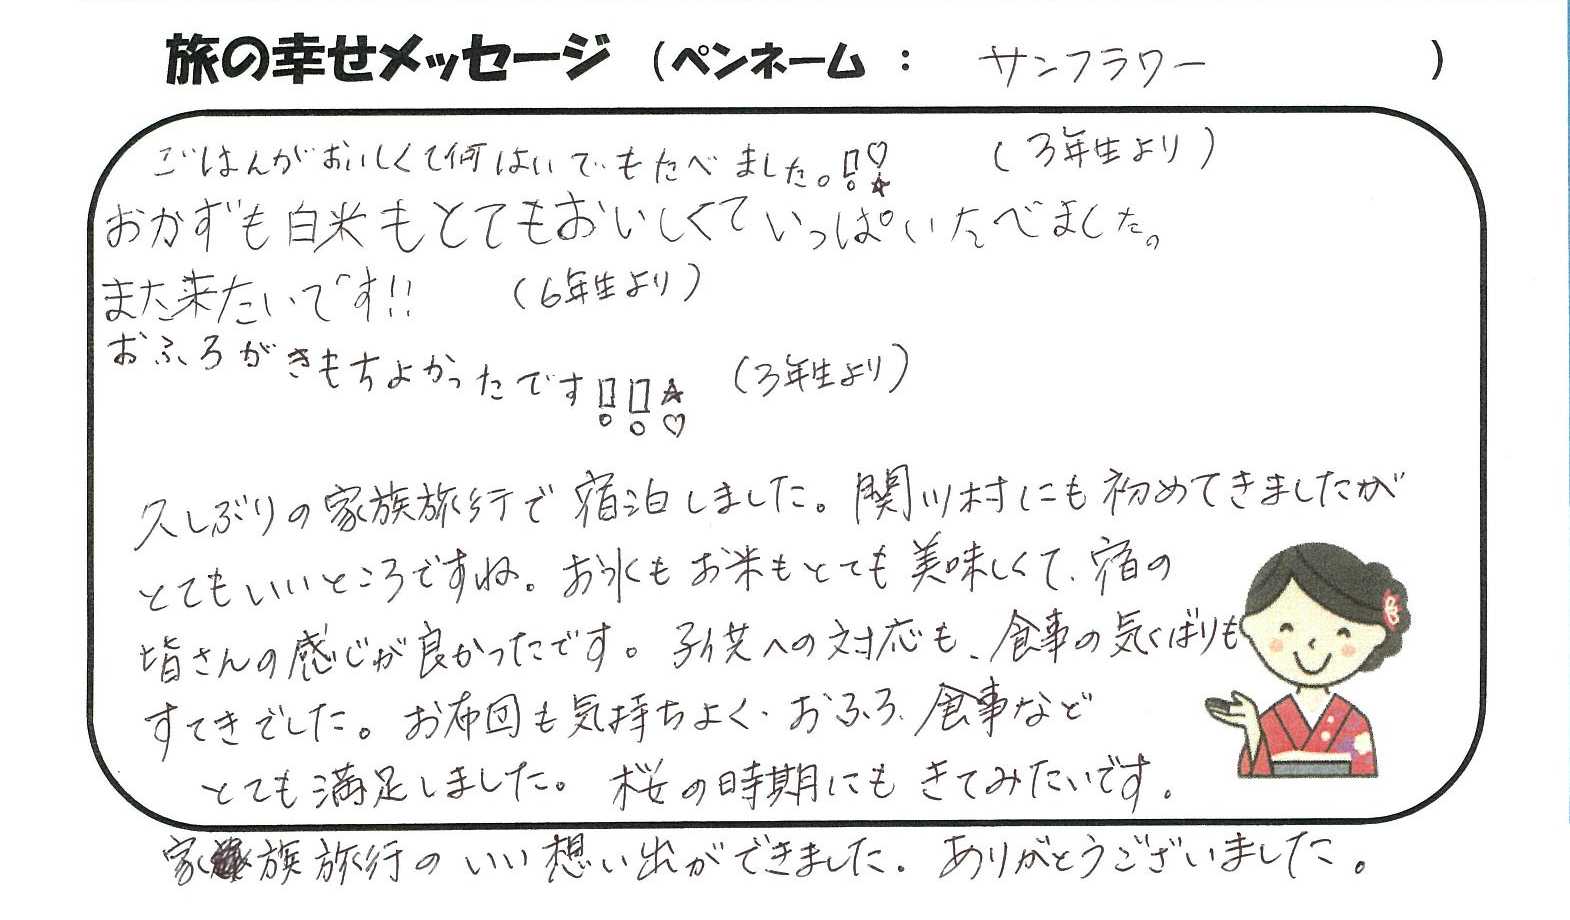 旅の幸せメッセージ（ペンネーム ： サンフラワー ）
ごはんがおいしくて何はいでもたべました。!♡☆ （3年生より）
おかずも白米もとてもおいしくていっぱいたべました。
また来たいです!! （6年生より）
おふろがきもちよかったです!!☆♡ （3年生より）
久しぶりの家族旅行で宿泊しました。関川村にも初めてきましたが
とてもいいところですね。お水もお米もとても美味しくて、宿の
皆さんの感じが良かったです。子供への対応も、食事の気くばりも
すてきでした。お布団も気持ちよく、おふろ、食事など
とても満足しました。桜の時期にもきてみたいです。
家族旅行のいい想い出ができました。ありがとうございました。